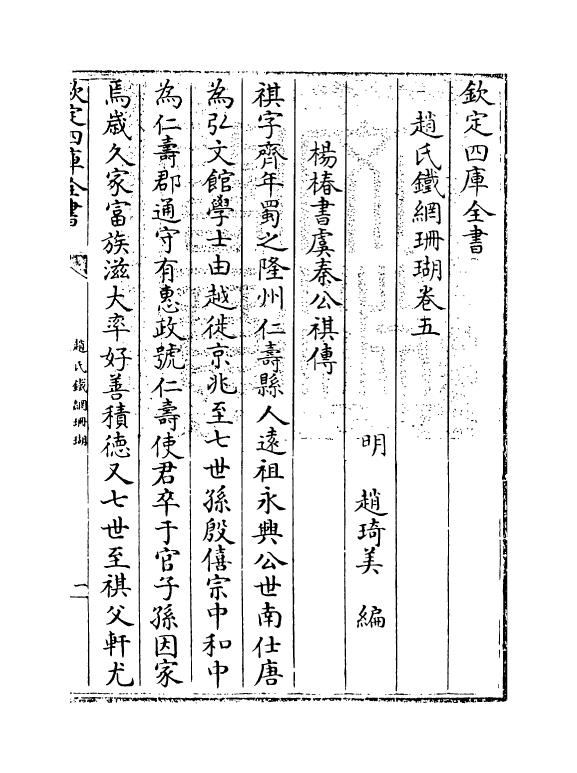 欽定四庫全書
趙氏鐵網珊瑚卷五
明 趙琦美 編
楊椿書虞秦公祺傳
祺字齊年蜀之隆州仁壽縣人遠祖永興公世南仕唐
為弘文館學士由越徙京兆至七世孫殷僖宗中和中
為仁壽郡通守有惠政號仁壽使君卒于官子孫因家
焉歲久家富族滋大率好善積德又七世至祺父軒尤
欽定四庫全書
趙氏鐵網珊瑚
一